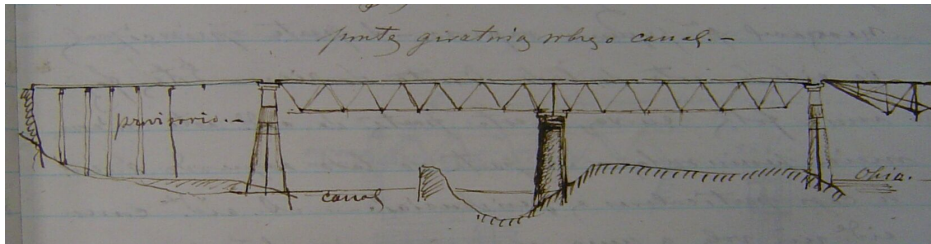 ponte giratoria sobre o canal. -
provisorio. -
canal
Ohio.